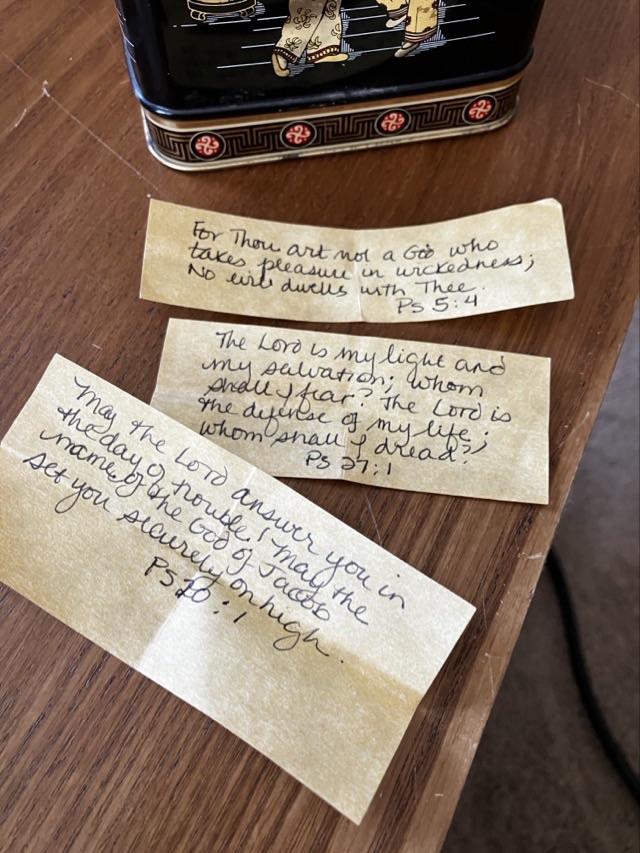 For Thou art not a God who
takes pleasure in wickedness;
No evil dwells with Thee.
Ps 5:4
The Lord is my light and
my salvation; whom
shall I fear? The Lord is
the defense of my life;
whom shall I dread?
Ps 27:1
May the Lord answer you in
the day of trouble! May the
name of the God of Jacob
set you securely on high.
Ps 20:1